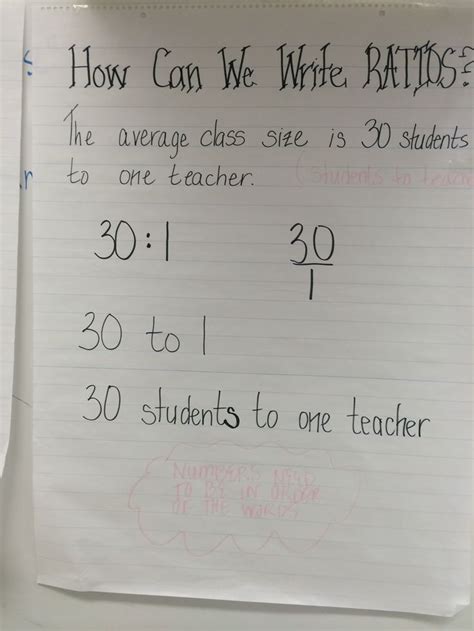 How Can We Write RATIOS?
The average class size is 30 students
to one teacher. (students to teacher
30:1
30
1
30 to 1
30 students to one teacher
NUMBERS NEED
TO BE IN ORDER
OF THE WORDS